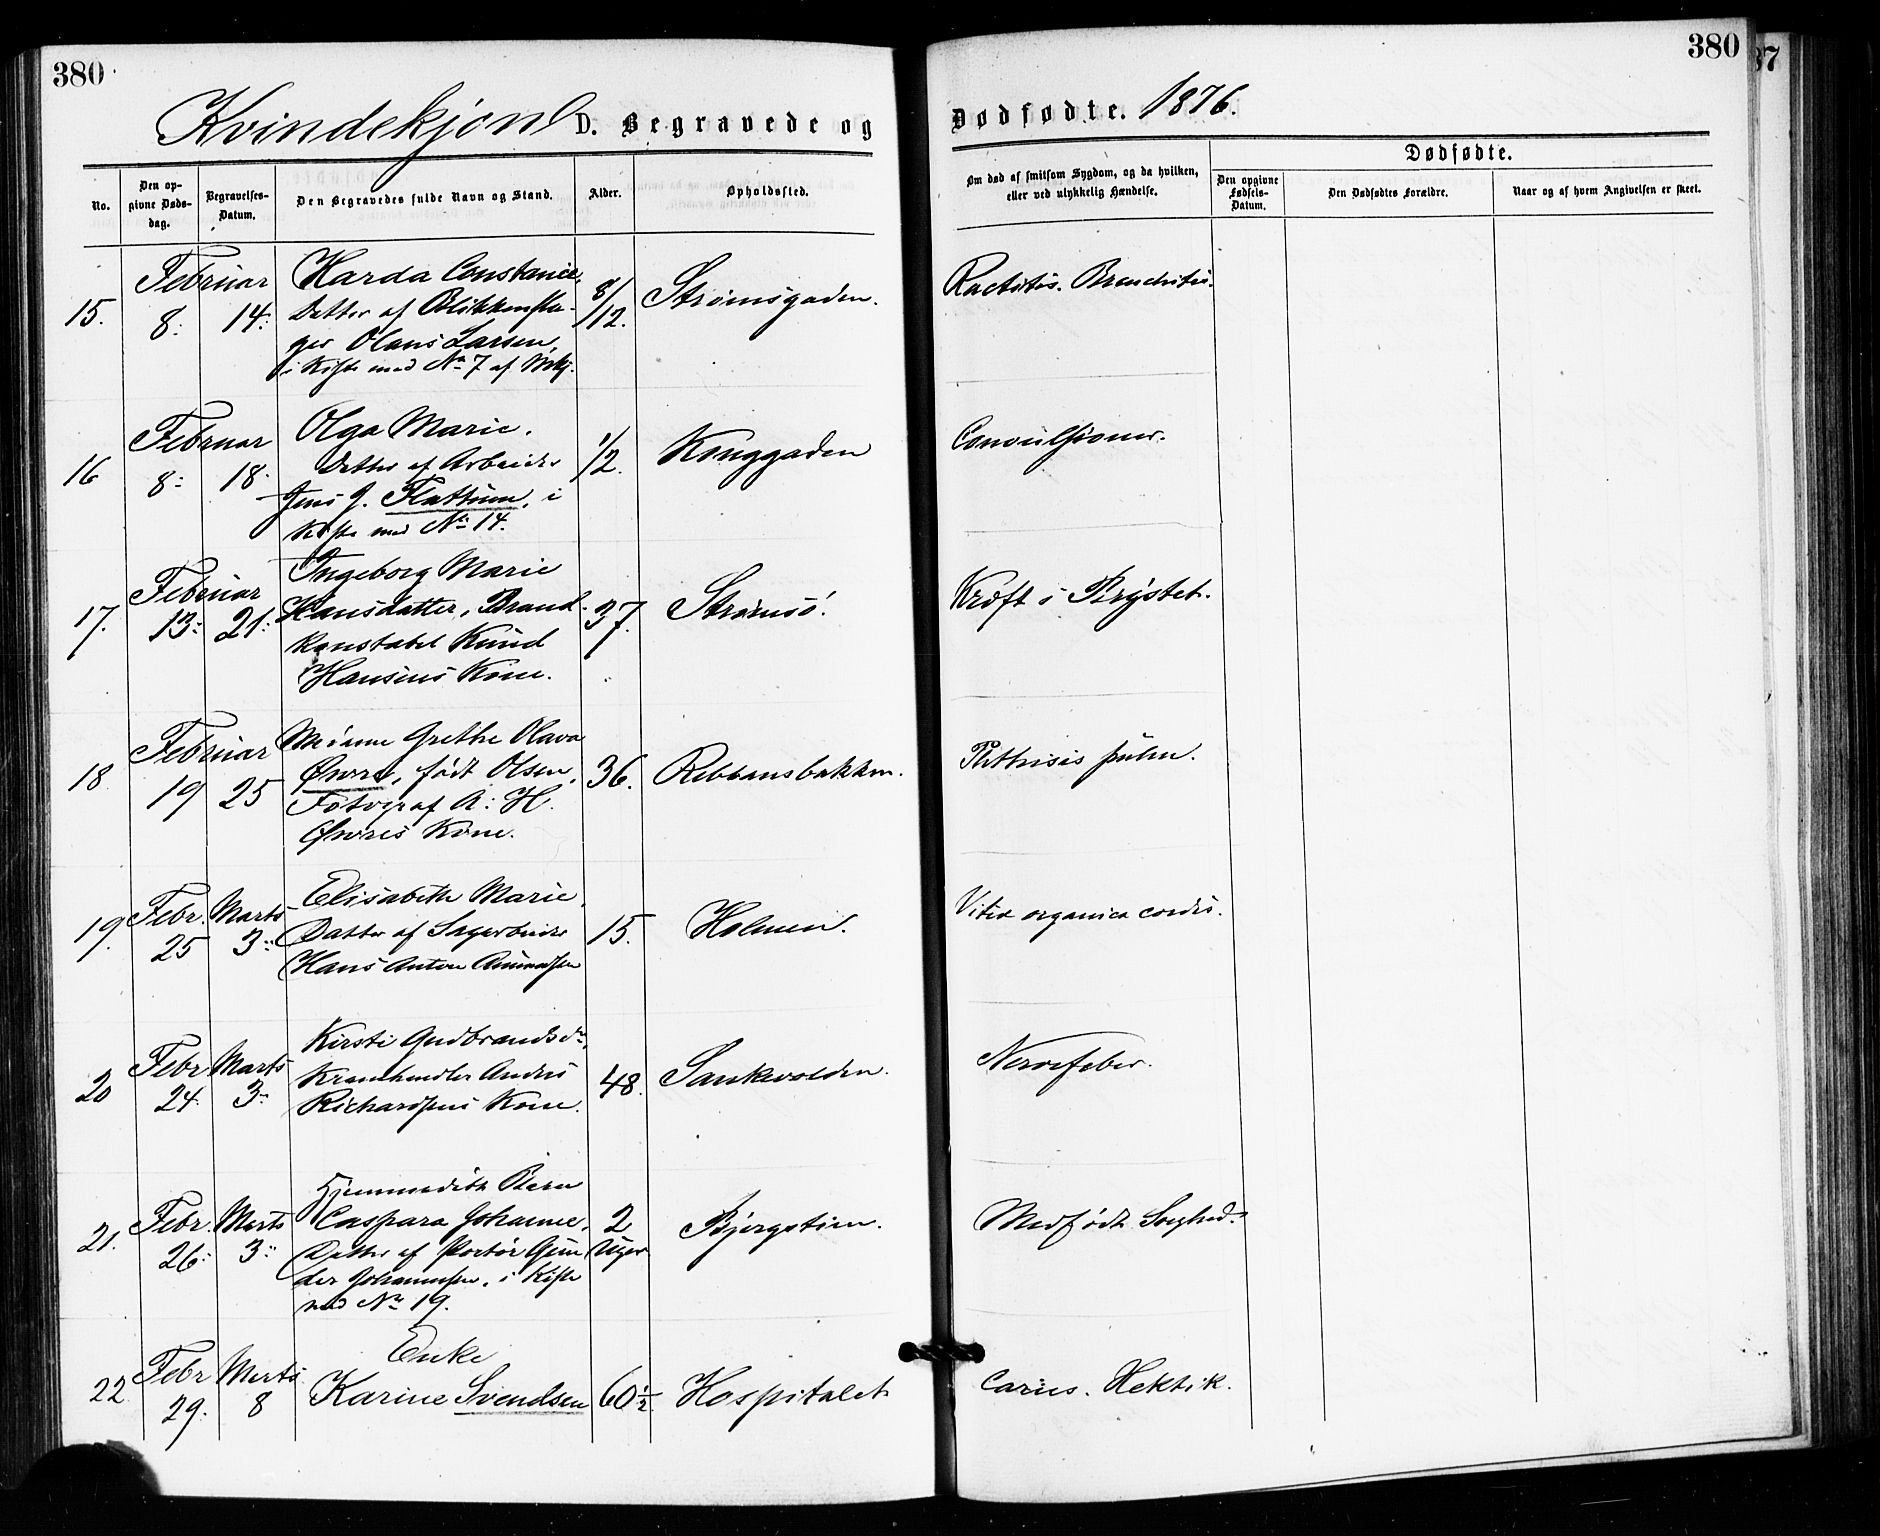 380
380
37
Kvindekjøn D. Begravede og
Dødfødte. 1876.
No.
Den opgivne Dødsdag.
Begravelses-Datum.
Den Begravedes fulde Navn og Stand.
Alder.
Opholdssted.
Om død af smitsom Sygdom, og da hvilken, eller ved ulykkelig Hændelse.
Dødfødte.
Den opgivne Fødsels-Datum.
Den Dødfødtes Forældre.
Naar og af hvem Angivelsen er skeet.
15.
Februar
8: 14:
Harda Constance,
Datter af Blikkensla-
ger Olaus Larsen,
i Kiste med No 7 af Mkj.
8/12.
Strømsgaden.
Rachitis. Bronchitis.
16
Februar
8: 18.
Olga Marie.
Datter af Arbeider
Jens J. Flattum, i
Kiste med No 14.
1/2.
Konggaden
Convulsioner.
17.
Februar
13: 21:
Ingeborg Marie
Hansdatter, Brand-
konstabel Knud
Hansens Kone.
37.
Strømsö.
Kræft i Brystet.
18
Februar
19 25
Grethe Olava
Øwre, født Olsen,
Fotograf A: H.
Øwres Kone.
36.
Rebbansbakken.
Phthisis pulm.
19.
Febr. Marts
25 3:
Elisabeth Marie,
Datter af Sagarbeider
Hans Anton Amundsen
15.
Holmen.
Vitia organica cordis.
20
Febr Marts
24. 3:
Kirsti Gudbrandsdr,
Kramhandler Anders
Richardsens Kone.
48.
Sankevolden.
Nervefeber.
21.
Febr. Marts
26: 3:
Hjemmedøbt Barn
Caspara Johanne,
Datter af Portör Gun-
der Johannesen, i Kiste
med No 19.
2
Uger
Bjergstien.
Medfødt Svaghed.
22
Febr Marts
29. 8
Enke
Karine Svendsen
60 1/2.
Hospitalet
Caries. Hektik.